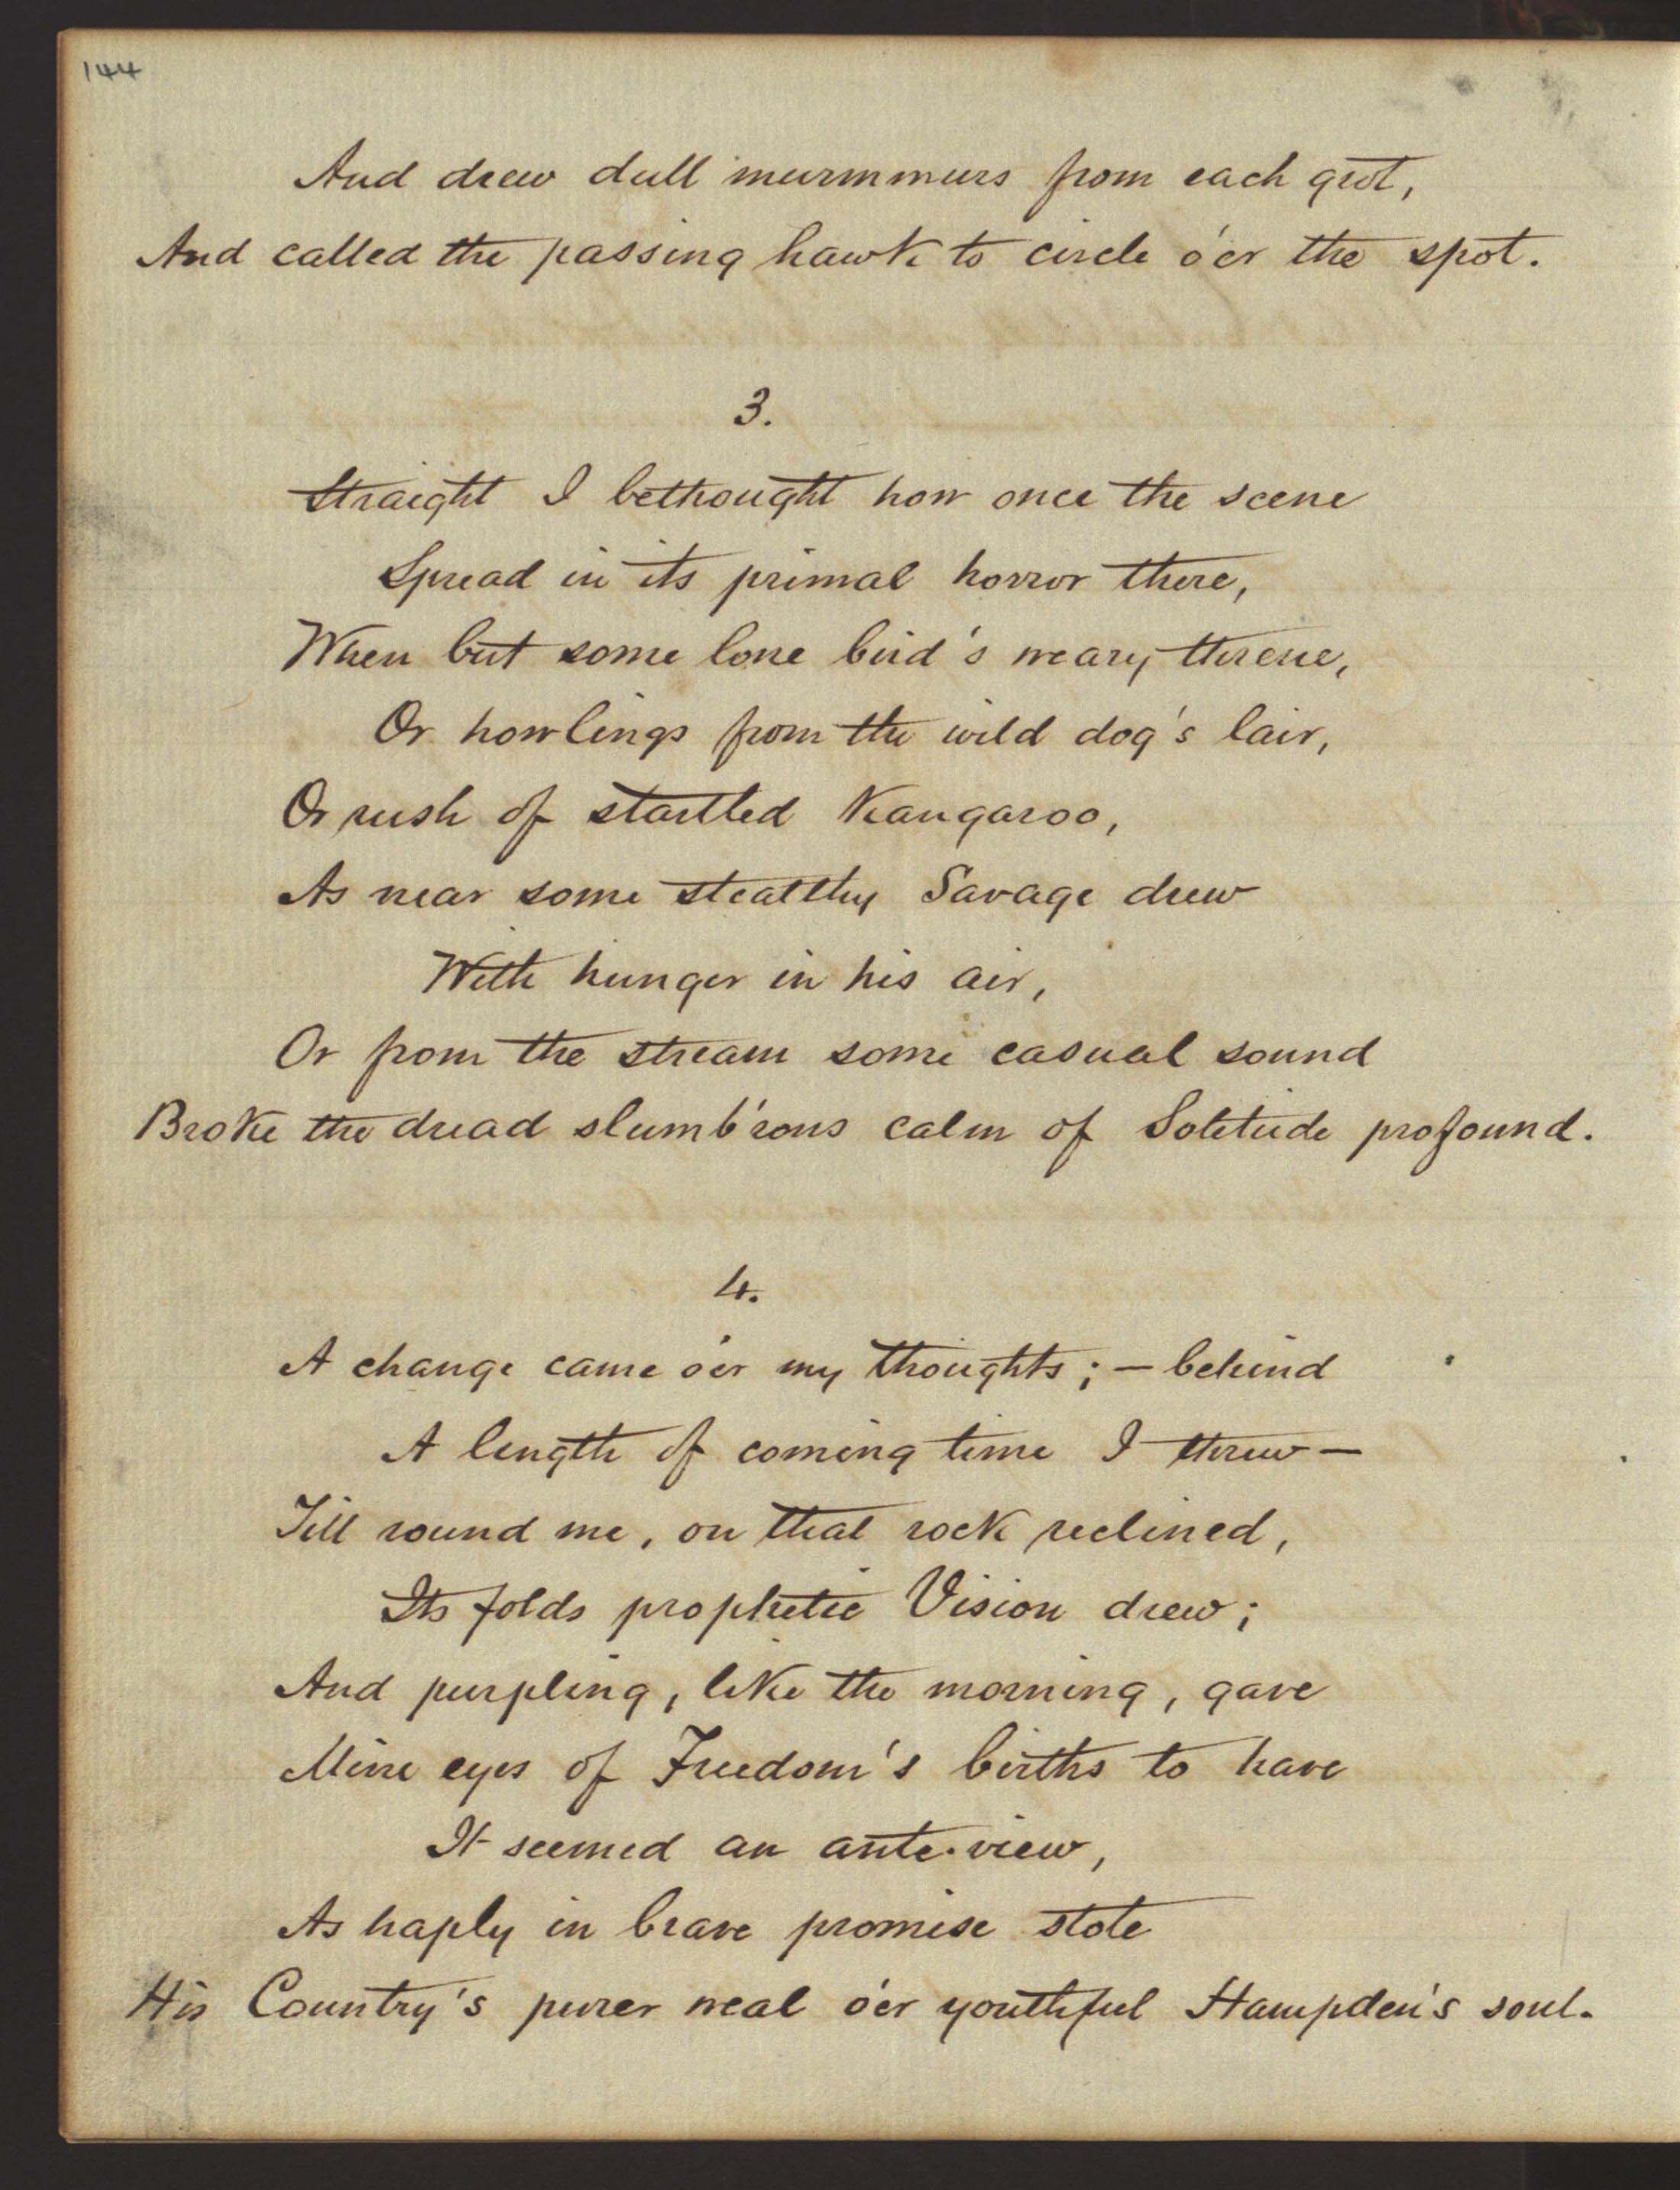 144
And drew dull murmmurs from each grot,
And called the passing hawk to circle o'er the spot.
3.
Straight I bethought how once the scene
Spread in its primal horror there,
When but some lone bird's weary threne,
Or howlings from the wild dog's lair,
Or rush of startled Kangaroo,
As near some stealthy Savage drew
With hunger in his air,
Or from the stream some casual sound
Broke the dread slumb'rous calm of Solitude profound.
4.
A change came o'er my thoughts; — behind
A length of coming time I threw —
Till round me, on that rock reclined,
Its folds prophetic Vision drew;
And purpling, like the morning, gave
Mine eyes of Freedom's births to have
It seemed an ante-view,
As haply in brave promise stole
His Country's purer weal o'er youthful Hampden's soul.